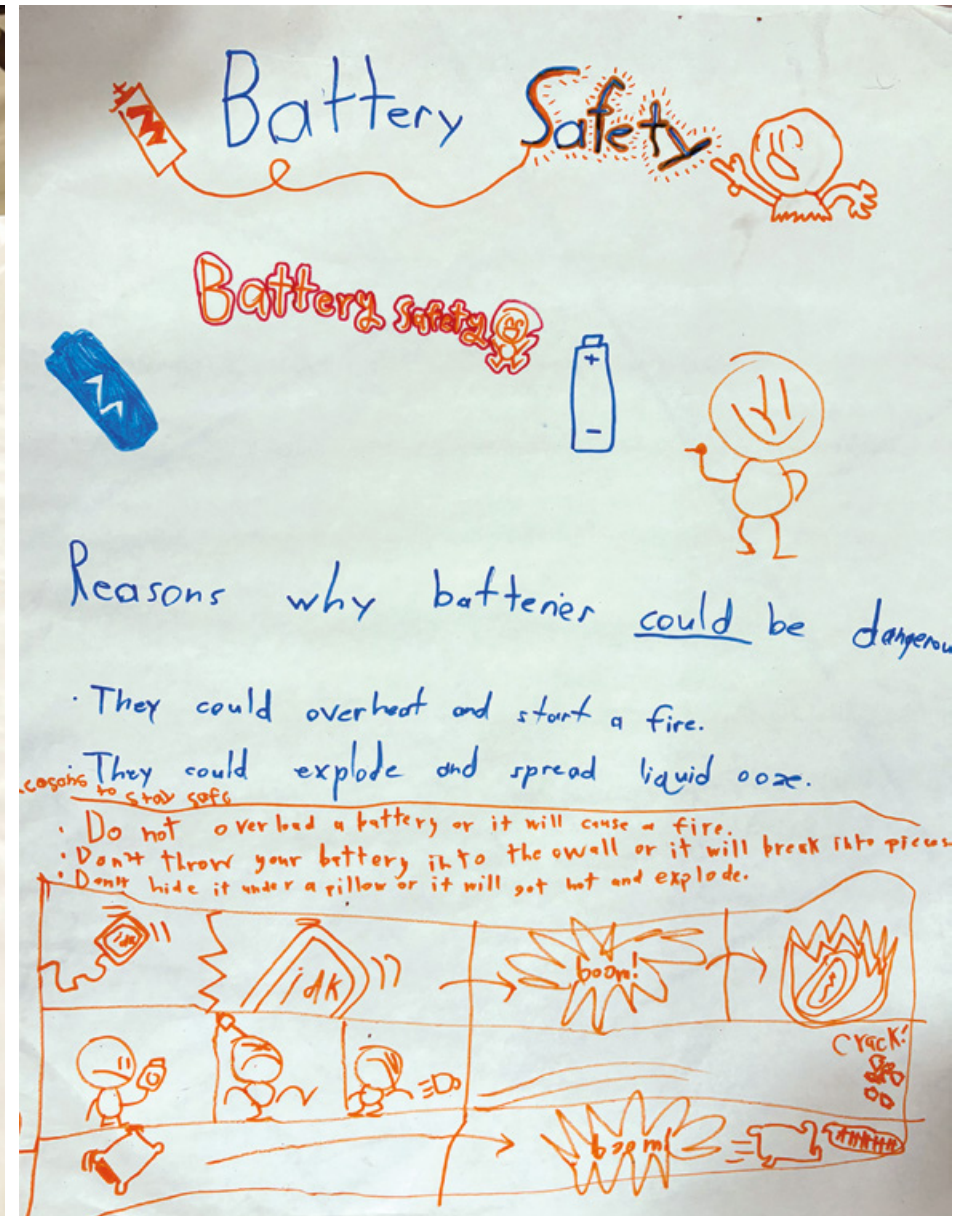 Battery Safety
Battery Safety
+
-
Reasons why batteries could be dangerou
· They could overheat and start a fire.
· They could explode and spread liquid ooze.
easons to stay safe
· Do not overload a battery or it will cause a fire.
· Don't throw your battery into the wall or it will break into pieces
· Don't hide it under a pillow or it will got hot and explode.
idk
idk
boom!
Crack!
boom!